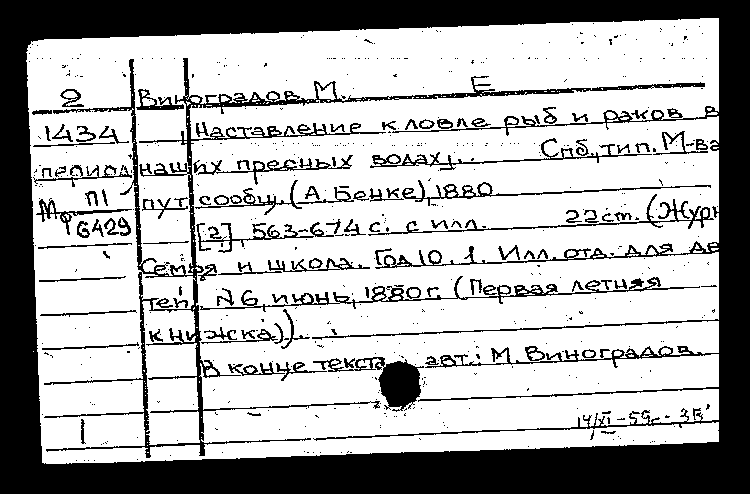 2 Виноградов, М. Е
1434 Наставление к ловле рыб и раков в
(период) наших пресных водах... Спб., тип. М-ва
Мф П1/6429 пут. сообщ. (А. Бенке), 1880
[2], 563-674 с. с илл. 22 ст. (Журн.
Семья и школа. Год 10. 1. Илл. отд. для де-
тей. N 6, июнь, 1880 г. (Первая летняя
книжка)).
В конце текста авт.: М. Виноградов.
1 14/XI-59г.